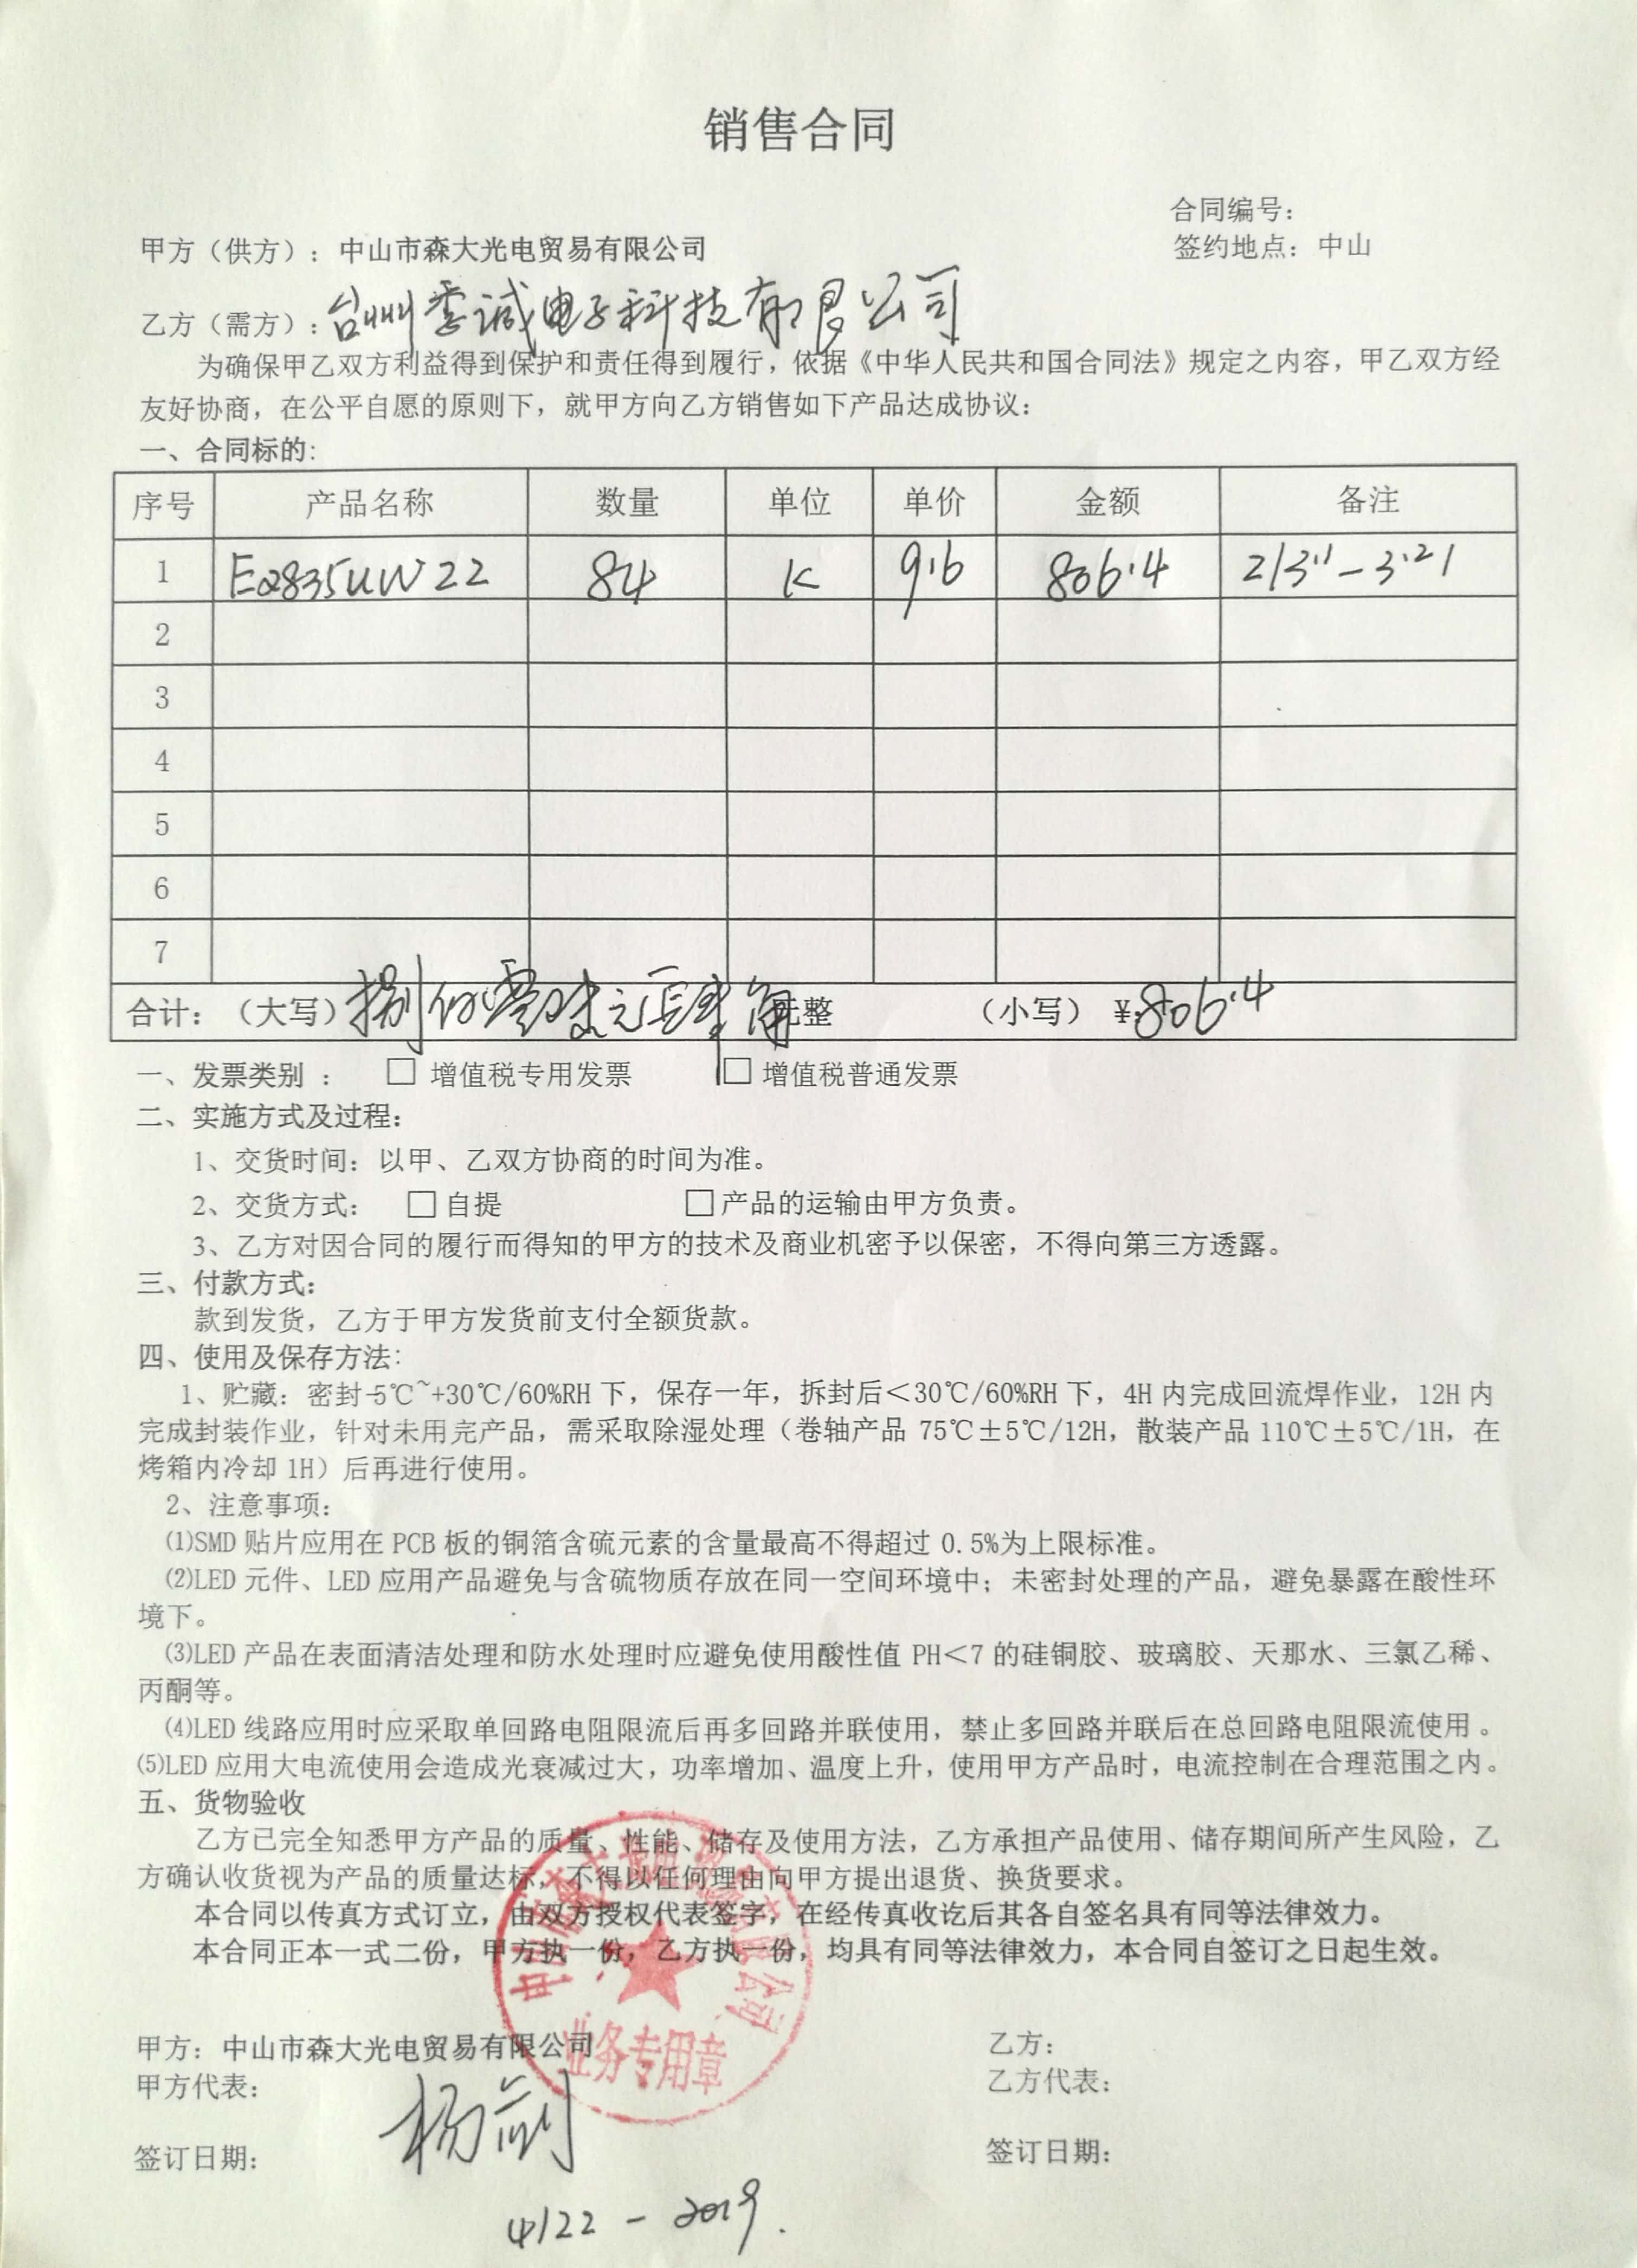 销售合同
合同编号：
甲方（供方）：中山市森大光电贸易有限公司
签约地点：中山
乙方（需方）：台州季诚电子科技有限公司
为确保甲乙双方利益得到保护和责任得到履行，依据《中华人民共和国合同法》规定之内容，甲乙双方经
友好协商，在公平自愿的原则下，就甲方向乙方销售如下产品达成协议：
一、合同标的：
序号 产品名称 数量 单位 单价 金额 备注
1 E2835UW22 84 K 9.6 806.4 213.1-3.21
2
3
4
5
6
7
合计：（大写）捌佰零陆元肆角元整 （小写）¥:806.4
一、发票类别 ： □ 增值税专用发票 □ 增值税普通发票
二、实施方式及过程：
1、交货时间：以甲、乙双方协商的时间为准。
2、交货方式： □自提 □产品的运输由甲方负责。
3、乙方对因合同的履行而得知的甲方的技术及商业机密予以保密，不得向第三方透露。
三、付款方式：
款到发货，乙方于甲方发货前支付全额货款。
四、使用及保存方法：
1、贮藏：密封-5℃~+30℃/60%RH 下，保存一年，拆封后＜30℃/60%RH 下，4H 内完成回流焊作业，12H 内
完成封装作业，针对未用完产品，需采取除湿处理（卷轴产品 75℃±5℃/12H，散装产品 110℃±5℃/1H，在
烤箱内冷却 1H）后再进行使用。
2、注意事项：
⑴SMD 贴片应用在 PCB 板的铜箔含硫元素的含量最高不得超过 0.5%为上限标准。
⑵LED 元件、LED 应用产品避免与含硫物质存放在同一空间环境中；未密封处理的产品，避免暴露在酸性环
境下。
⑶LED 产品在表面清洁处理和防水处理时应避免使用酸性值 PH＜7 的硅铜胶、玻璃胶、天那水、三氯乙稀、
丙酮等。
⑷LED 线路应用时应采取单回路电阻限流后再多回路并联使用，禁止多回路并联后在总回路电阻限流使用 。
⑸LED 应用大电流使用会造成光衰减过大，功率增加、温度上升，使用甲方产品时，电流控制在合理范围之内。
五、货物验收
乙方已完全知悉甲方产品的质量、性能、储存及使用方法，乙方承担产品使用、储存期间所产生风险，乙
方确认收货视为产品的质量达标，不得以任何理由向甲方提出退货、换货要求。
本合同以传真方式订立，由双方授权代表签字，在经传真收讫后其各自签名具有同等法律效力。
本合同正本一式二份，甲方执一份，乙方执一份，均具有同等法律效力，本合同自签订之日起生效。
业务专用章
甲方：中山市森大光电贸易有限公司
乙方：
甲方代表：杨剑
乙方代表：
签订日期：
签订日期：
4/22-2019.